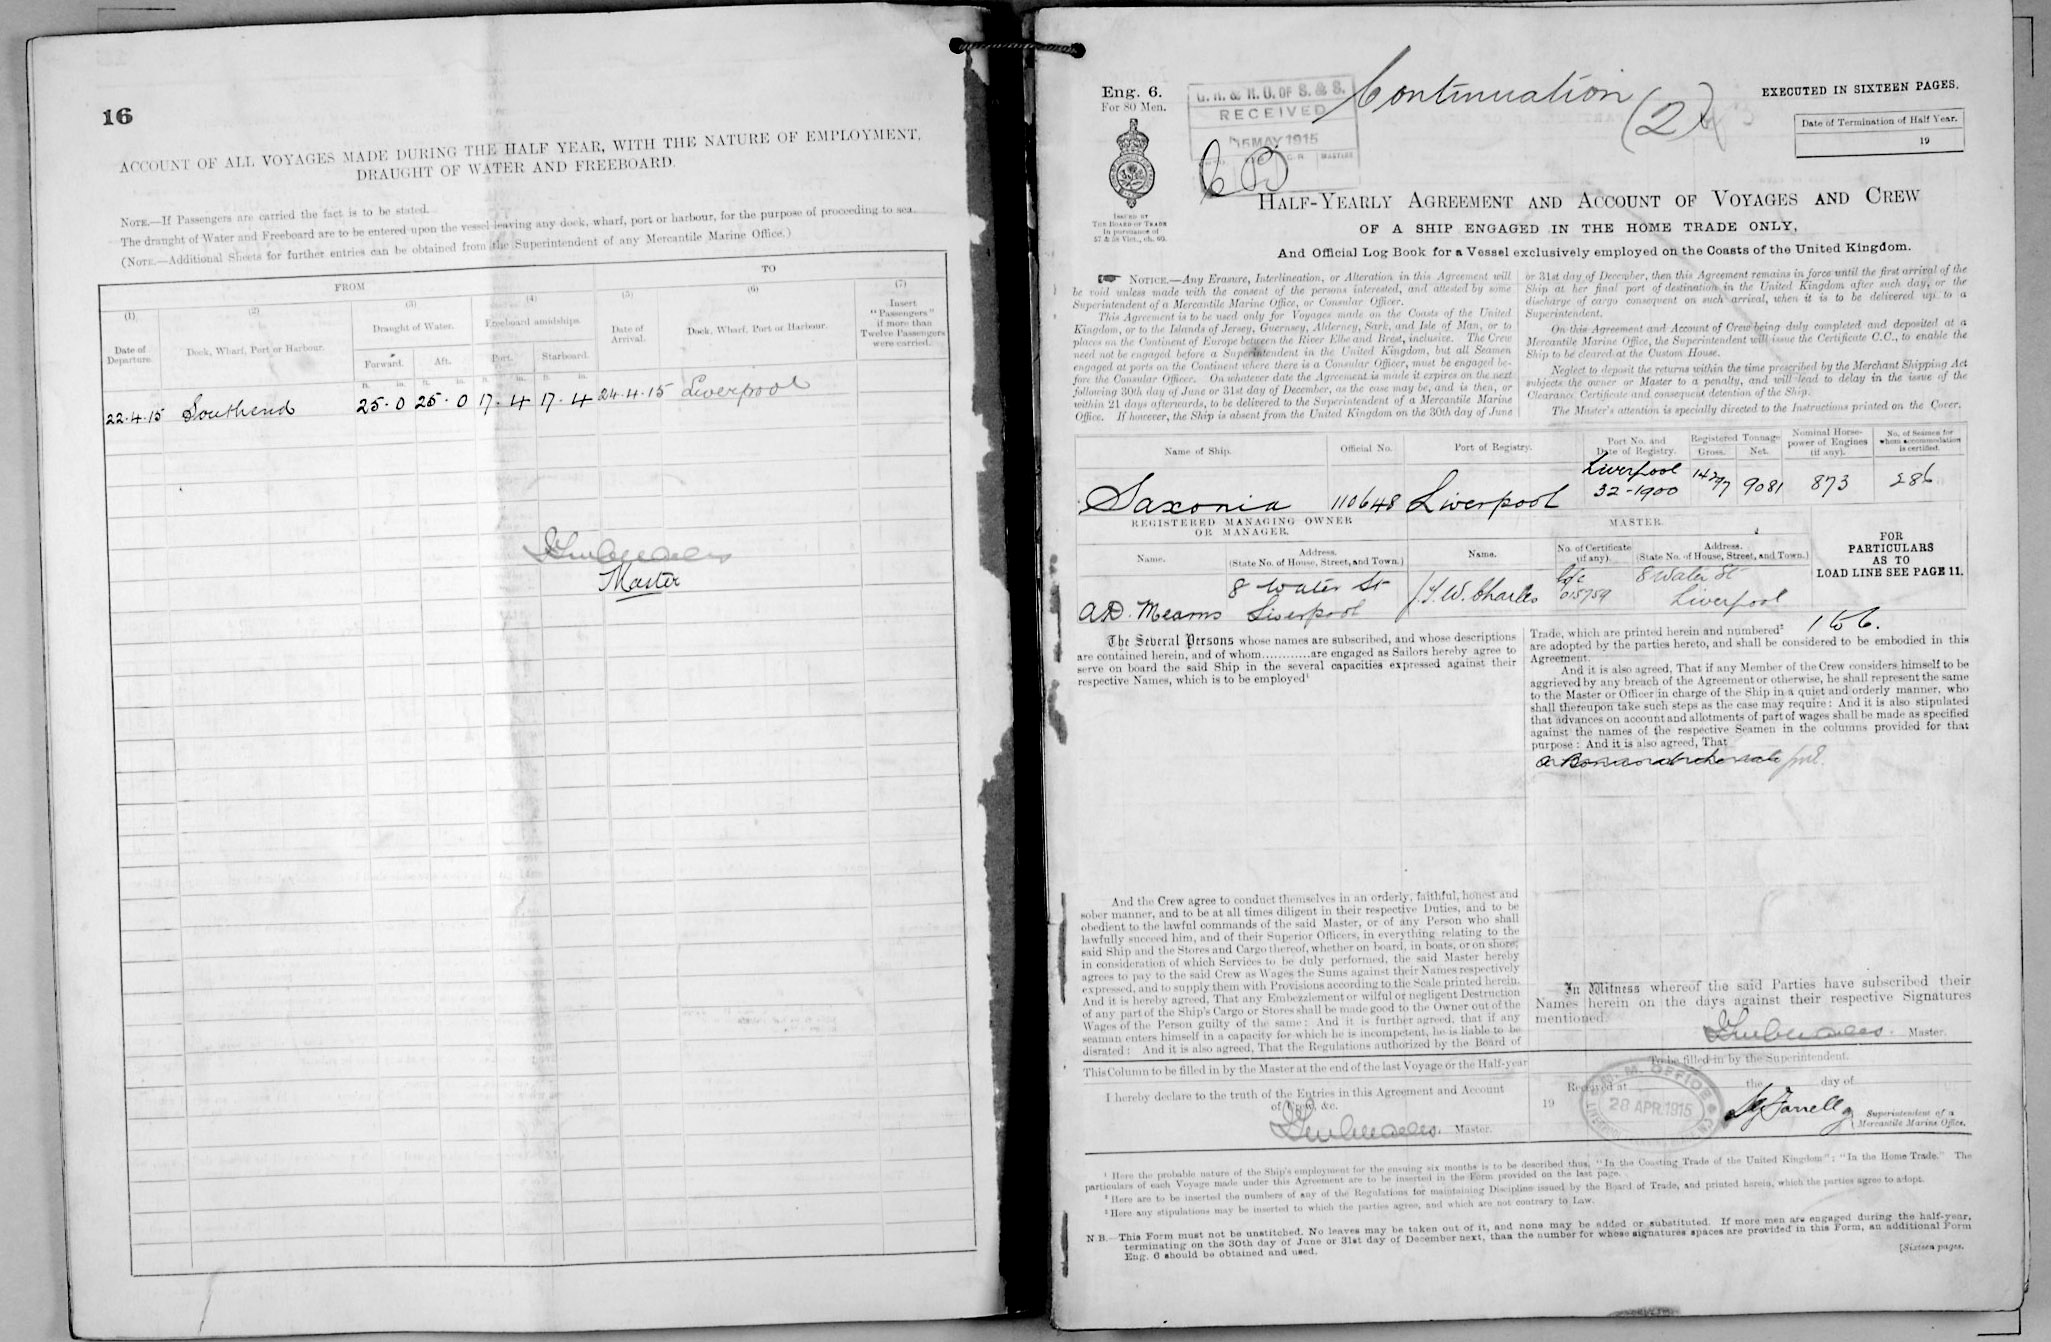 16
ACCOUNT OF ALL VOYAGES MADE DURING THE HALF YEAR, WITH THE NATURE OF EMPLOYMENT,
DRAUGHT OF WATER AND FREEBOARD.
NOTE.—If Passengers are carried the fact is to be stated.
The draught of Water and Freeboard are to be entered upon the vessel leaving any dock, wharf, port or harbour, for the purpose of proceeding to sea.
(NOTE.—Additional Sheets for further entries can be obtained from the Superintendent of any Mercantile Marine Office.)
FROM
TO
(1)
(2)
(3)
(4)
(5)
(6)
(7)
Date of Departure.
Dock, Wharf, Port or Harbour.
Draught of Water.
Freeboard amidships.
Date of Arrival.
Dock, Wharf, Port or Harbour.
Insert "Passengers" if more than Twelve Passengers were carried.
Forward.
Aft.
Port.
Starboard.
ft. in. ft. in. ft. in. ft. in.
22.4.15 Southend 25.0 25.0 17.4 17.4 24.4.15 Liverpool
Master
Eng. 6.
For 80 Men.
G. R. & R. O. OF S. & S.
RECEIVED
MAY 1915
Continuation (2)
EXECUTED IN SIXTEEN PAGES.
Date of Termination of Half Year.
19
ISSUED BY
THE BOARD OF TRADE
In pursuance of
57 & 58 Vict., ch. 60.
HALF-YEARLY AGREEMENT AND ACCOUNT OF VOYAGES AND CREW
OF A SHIP ENGAGED IN THE HOME TRADE ONLY,
And Official Log Book for a Vessel exclusively employed on the Coasts of the United Kingdom.
NOTICE.—Any Erasure, Interlineation, or Alteration in this Agreement will
be void unless made with the consent of the persons interested, and attested by some
Superintendent of a Mercantile Marine Office, or Consular Officer.
This Agreement is to be used only for Voyages made on the Coasts of the United
Kingdom, or to the Islands of Jersey, Guernsey, Alderney, Sark, and Isle of Man, or to
places on the Continent of Europe between the River Elbe and Brest, inclusive. The Crew
need not be engaged before a Superintendent in the United Kingdom, but all Seamen
engaged at ports on the Continent where there is a Consular Officer, must be engaged be-
fore the Consular Officer. On whatever date the Agreement is made it expires on the next
following 30th day of June or 31st day of December, as the case may be, and is then, or
within 21 days afterwards, to be delivered to the Superintendent of a Mercantile Marine
Office. If however, the Ship is absent from the United Kingdom on the 30th day of June
or 31st day of December, then this Agreement remains in force until the first arrival of the
Ship at her final port of destination in the United Kingdom after such day, or the
discharge of cargo consequent on such arrival, when it is to be delivered up to a
Superintendent.
On this Agreement and Account of Crew being duly completed and deposited at a
Mercantile Marine Office, the Superintendent will issue the Certificate C.C., to enable the
Ship to be cleared at the Custom House.
Neglect to deposit the returns within the time prescribed by the Merchant Shipping Act
subjects the owner or Master to a penalty, and will lead to delay in the issue of the
Clearance Certificate and consequent detention of the Ship.
The Master's attention is specially directed to the Instructions printed on the Cover.
Name of Ship.
Official No.
Port of Registry.
Port No. and Date of Registry.
Registered Tonnage
Gross.
Net.
Nominal Horse-power of Engines (if any).
No. of Seamen for whom accommodation is certified.
Saxonia 110648 Liverpool Liverpool 32-1900 14297 9081 873 286
REGISTERED MANAGING OWNER
OR MANAGER.
MASTER.
Name.
Address.
(State No. of House, Street, and Town.)
Name.
No. of Certificate (if any).
Address.
(State No. of House, Street, and Town.)
FOR
PARTICULARS
AS TO
LOAD LINE SEE PAGE 11.
A.D. Mearns 8 Water St Liverpool
J.T.W. Charles 015759 8 Water St Liverpool
The Several Persons whose names are subscribed, and whose descriptions
are contained herein, and of whom............are engaged as Sailors hereby agree to
serve on board the said Ship in the several capacities expressed against their
respective Names, which is to be employed¹
Trade, which are printed herein and numbered² 1 to 6.
are adopted by the parties hereto, and shall be considered to be embodied in this
Agreement.
And it is also agreed, That if any Member of the Crew considers himself to be
aggrieved by any breach of the Agreement or otherwise, he shall represent the same
to the Master or Officer in charge of the Ship in a quiet and orderly manner, who
shall thereupon take such steps as the case may require: And it is also stipulated
that advances on account and allotments of part of wages shall be made as specified
against the names of the respective Seamen in the columns provided for that
purpose: And it is also agreed, That
And the Crew agree to conduct themselves in an orderly, faithful, honest and
sober manner, and to be at all times diligent in their respective Duties, and to be
obedient to the lawful commands of the said Master, or of any Person who shall
lawfully succeed him, and of their Superior Officers, in everything relating to the
said Ship and the Stores and Cargo thereof, whether on board, in boats, or on shore;
in consideration of which Services to be duly performed, the said Master hereby
agrees to pay to the said Crew as Wages the Sums against their Names respectively
expressed, and to supply them with Provisions according to the Scale printed herein.
And it is hereby agreed, That any Embezzlement or wilful or negligent Destruction
of any part of the Ship's Cargo or Stores shall be made good to the Owner out of the
Wages of the Person guilty of the same: And it is further agreed, that if any
seaman enters himself in a capacity for which he is incompetent, he is liable to be
disrated: And it is also agreed, That the Regulations authorized by the Board of
In Witness whereof the said Parties have subscribed their
Names herein on the days against their respective Signatures
mentioned.
Master.
This Column to be filled in by the Master at the end of the last Voyage or the Half-year
I hereby declare to the truth of the Entries in this Agreement and Account
of Crew, &c.
Master.
To be filled in by the Superintendent.
Received at the day of
19
M. M. OFFICE
28 APR. 1915
Farrell
Superintendent of a
Mercantile Marine Office.
¹ Here the probable nature of the Ship's employment for the ensuing six months is to be described thus, "In the Coasting Trade of the United Kingdom"; "In the Home Trade." The
particulars of each Voyage made under this Agreement are to be inserted in the Form provided on the last page.
² Here are to be inserted the numbers of any of the Regulations for maintaining Discipline issued by the Board of Trade, and printed herein, which the parties agree to adopt.
³ Here any stipulations may be inserted to which the parties agree, and which are not contrary to Law.
N.B.—This Form must not be unstitched. No leaves may be taken out of it, and none may be added or substituted. If more men are engaged during the half-year,
terminating on the 30th day of June or 31st day of December next, than the number for whose signatures spaces are provided in this Form, an additional Form
Eng. 6 should be obtained and used.
[Sixteen pages.